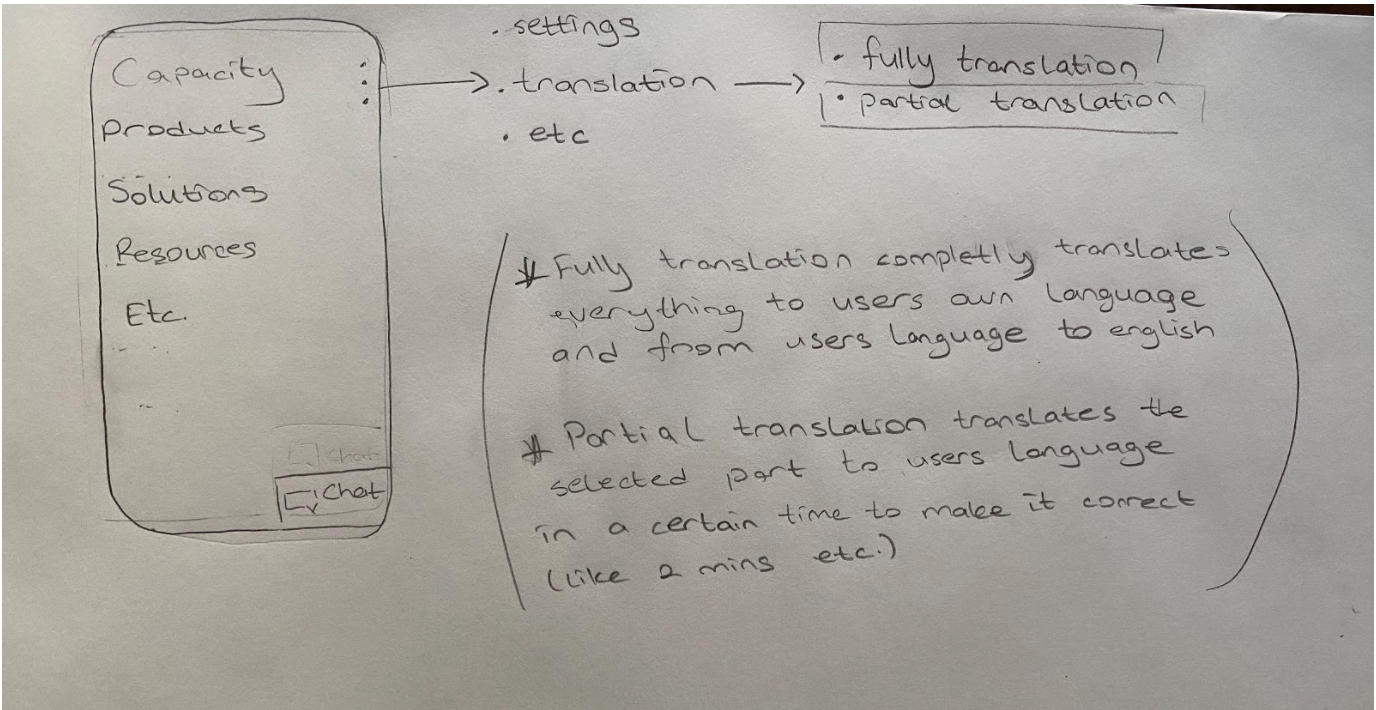 Capacity
Products
Solutions
Resources
Etc.
Chat
Chat
. settings
. translation
. etc
. fully translation
. partial translation
* Fully translation completly translates
everything to users own language
and from users language to english
* Partial translation translates the
selected part to users language
in a certain time to make it correct
(Like 2 mins etc.)